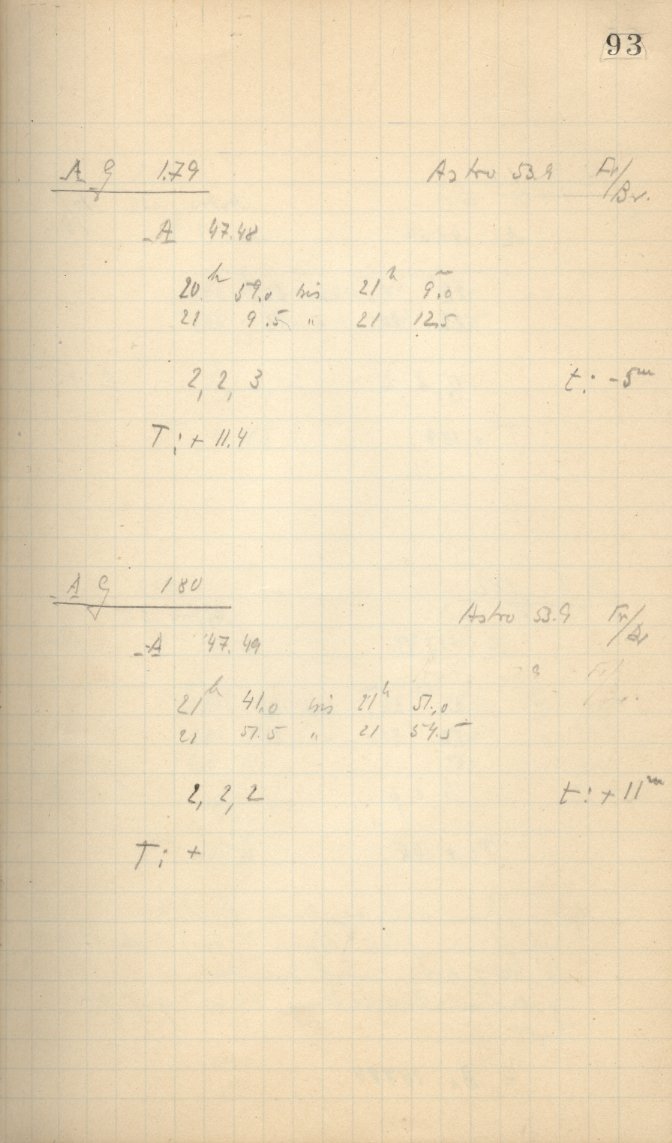 93
A G 179 Astro 53.9 Fr/Br.
A 47.48
20h 59.0 bis 21h 9m.0
21 9.5 " 21 12.5
2, 2, 3 t: -5m
T: + 11.4
A G 180 Astro 53.9 Fr/Br
A 47.49
21h 41.0 bis 21h 51.0
21 51.5 " 21 54.5
2, 2, 2 t: + 11m
T: +